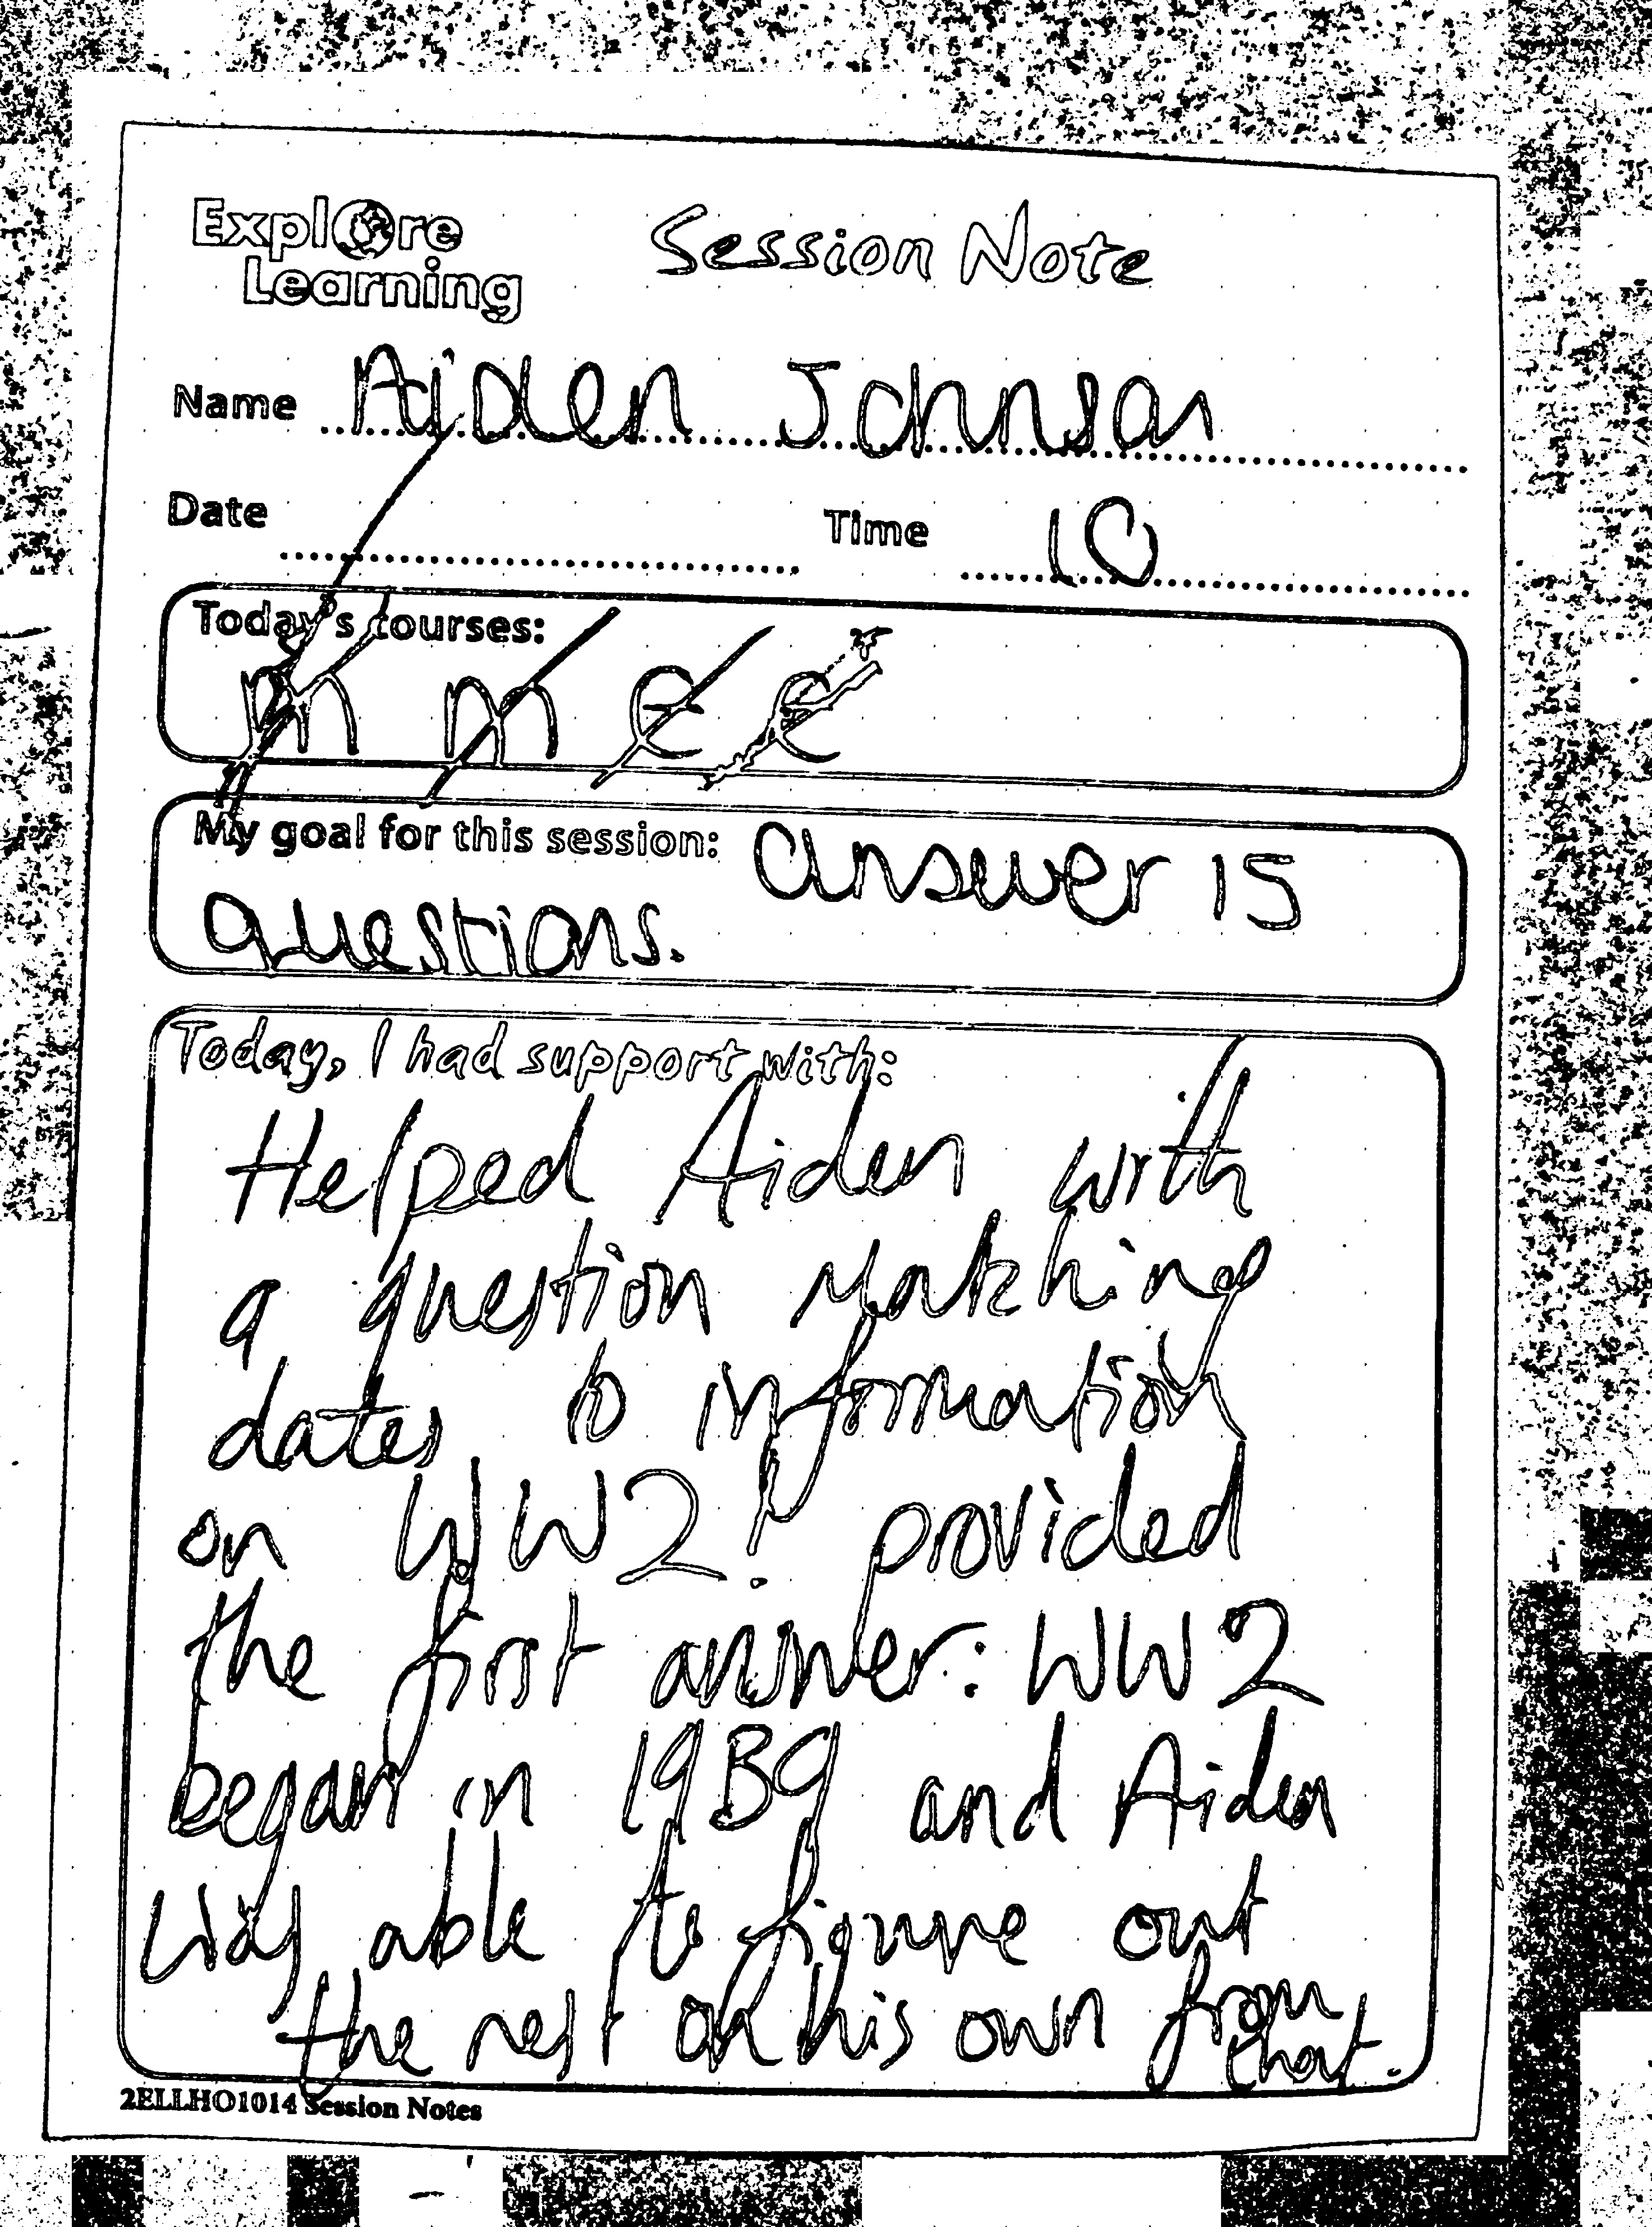 Explore
Learning
Session Note
Name Aiden Johnson
Date Time 10
Today's courses:
m m e e
My goal for this session: answer 15
questions.
Today, I had support with:
Helped Aiden with
a question matching
dates to information
on WW2! provided
the first answer: WW2
began in 1939 and Aiden
was able to figure out
the rest on his own from
that.
2ELLHO1014 Session Notes